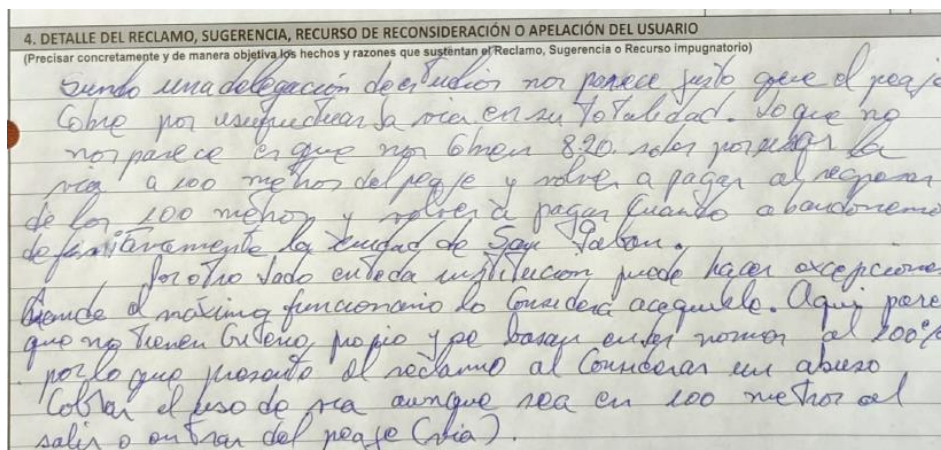 4. DETALLE DEL RECLAMO, SUGERENCIA, RECURSO DE RECONSIDERACIÓN O APELACIÓN DEL USUARIO
(Precisar concretamente y de manera objetiva los hechos y razones que sustentan el Reclamo, Sugerencia o Recurso impugnatorio)
Siendo una delegación de estudios nos parece justo que el peaje
Cobre por usufructuar la via en su Totalidad. Lo que no
nos parece es que nos Cobren 8.20 soles por usar la
via a 100 metros del peaje y volver a pagar al regresar
de los 100 metros y volver a pagar Cuando abandonemos
definitivamente la Ciudad de San Gaban.
Por otro lado en toda institucion puede hacer excepciones
donde el maximo funcionario lo Considera acequible. Aqui parece
que no Tienen Criterio propio y se basan en las normas al 100%
por lo que presento el reclamo al Considerar un abuso
Cobrar el uso de via aunque sea en 100 metros al
salir o entrar del peaje (via).